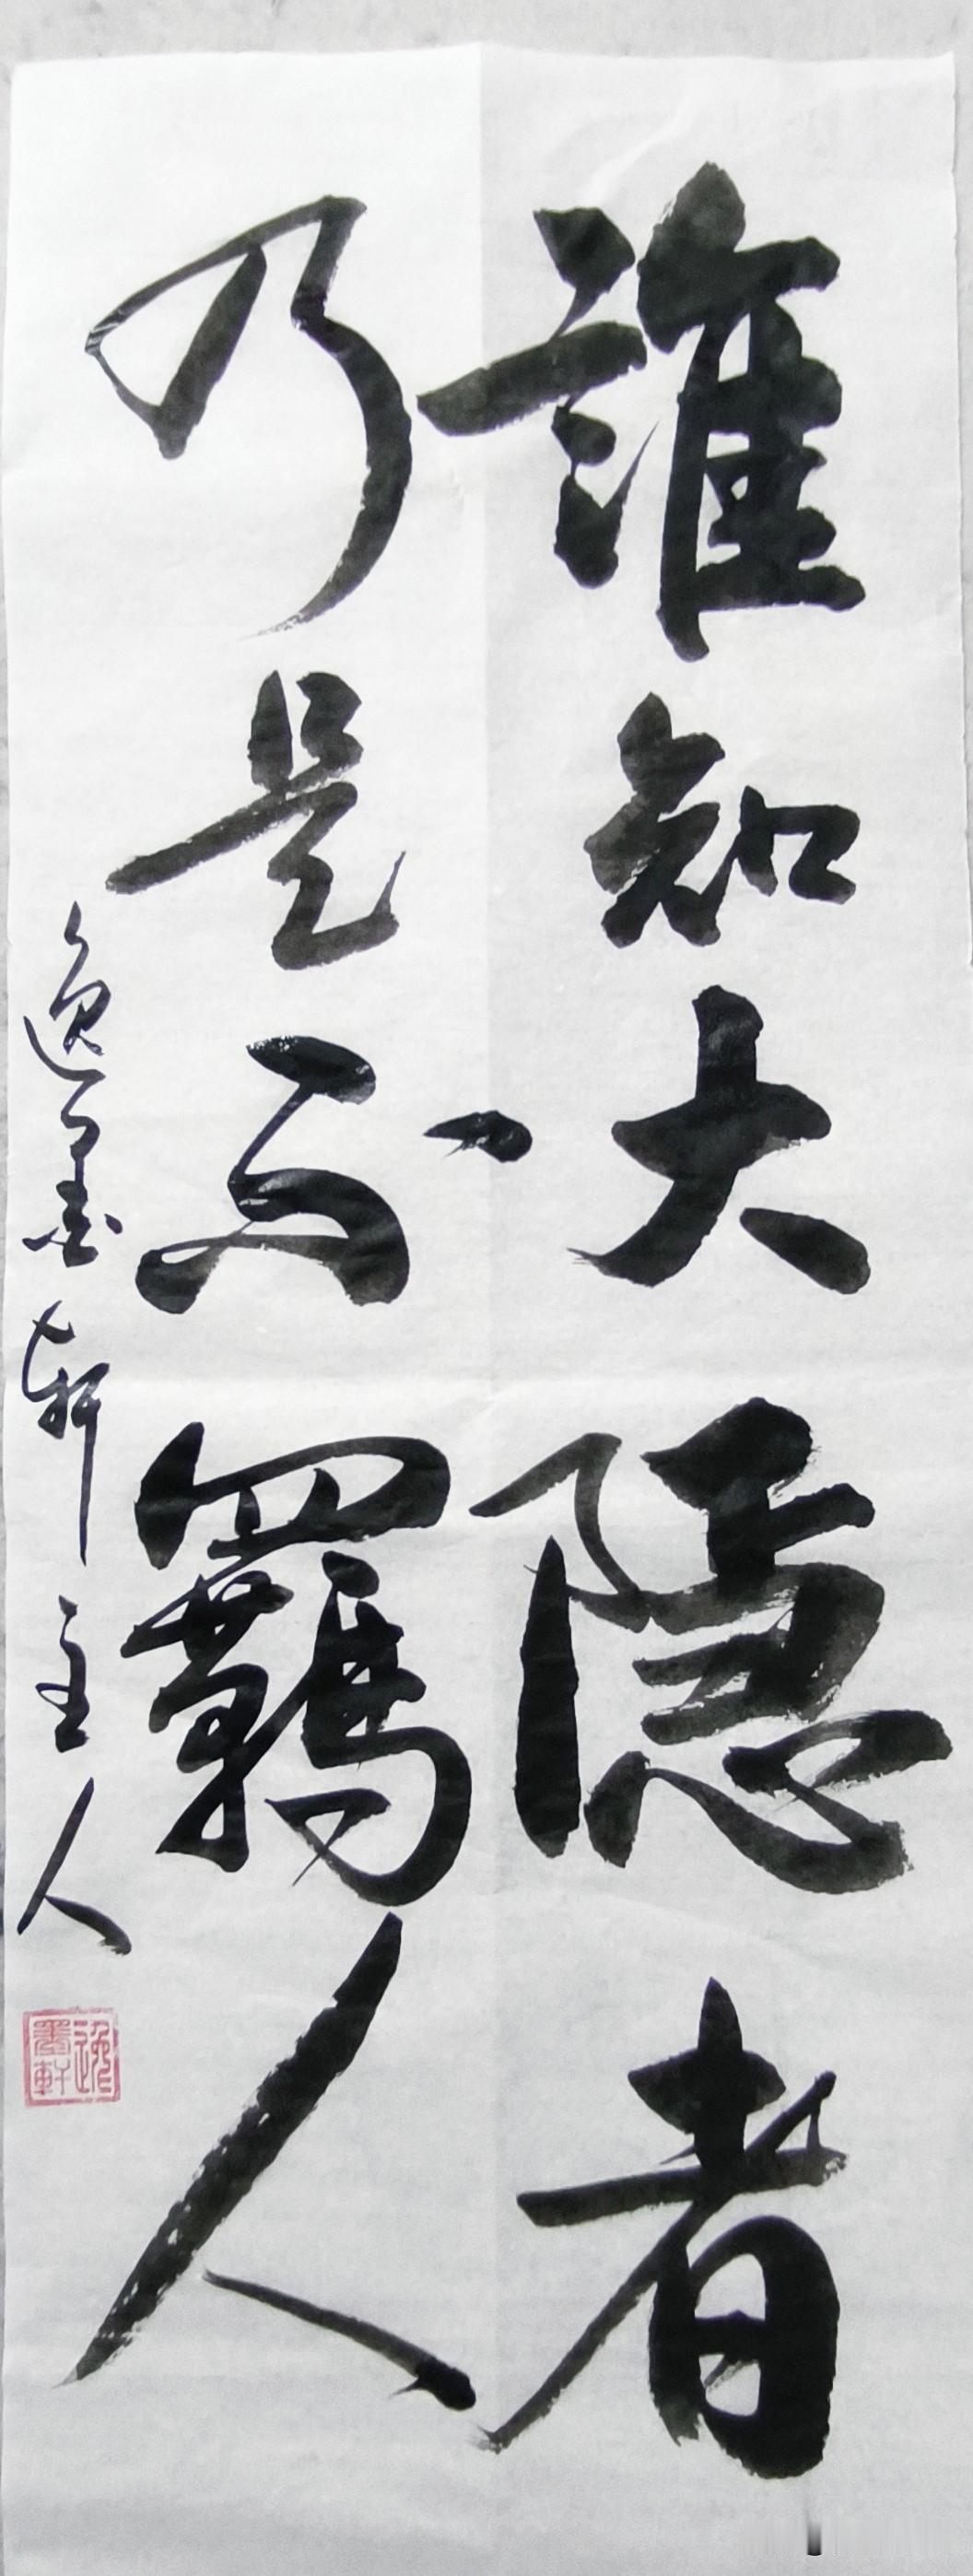 誰知大隱者
乃是不羈人
逸墨軒主人
逸墨軒